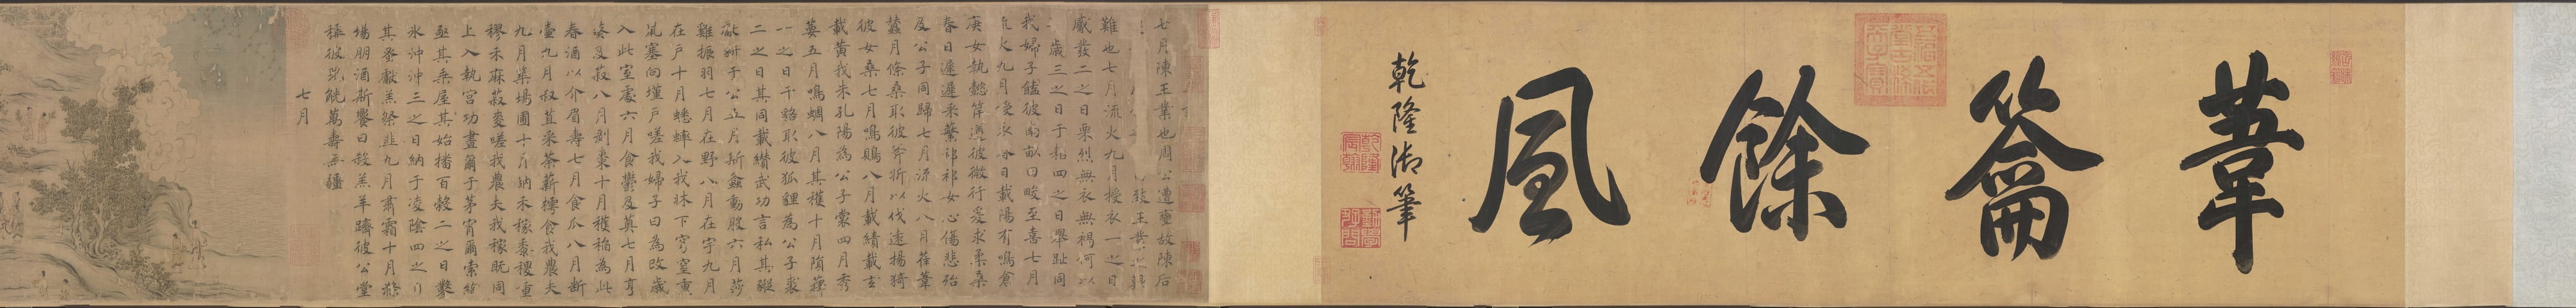 葦籥餘風
乾隆御筆
七月陳王業也周公遭變故陳后
致王業之艱
難也七月流火九月授衣一之日
觱發二之日栗烈無衣無褐何以
歲三之日于耜四之日舉趾同
我婦子饁彼南畝田畯至喜七月
流火九月授衣春日載陽有鳴倉
庚女執懿筐遵彼微行爰求柔桑
春日遲遲采蘩祁祁女心傷悲殆
及公子同歸七月流火八月萑葦
蠶月條桑取彼斧斨以伐遠揚猗
彼女桑七月鳴鵙八月載績載玄
載黃我朱孔陽為公子裳四月秀
葽五月鳴蜩八月其穫十月隕蘀
一之日于貉取彼狐貍為公子裘
二之日其同載纘武功言私其豵
獻豜于公五月斯螽動股六月莎
雞振羽七月在野八月在宇九月
在戶十月蟋蟀入我牀下穹窒熏
鼠塞向墐戶嗟我婦子曰為改歲
入此室處六月食鬱及薁七月亨
葵及菽八月剝棗十月穫稻為此
春酒以介眉壽七月食瓜八月斷
壺九月叔苴采荼薪樗食我農夫
九月築場圃十月納禾稼黍稷重
穋禾麻菽麥嗟我農夫我稼既同
上入執宮功晝爾于茅宵爾索綯
亟其乘屋其始播百穀二之日鑿
冰沖沖三之日納于凌陰四之日
其蚤獻羔祭韭九月肅霜十月滌
場朋酒斯饗曰殺羔羊躋彼公堂
稱彼兕觥萬壽無疆
七月